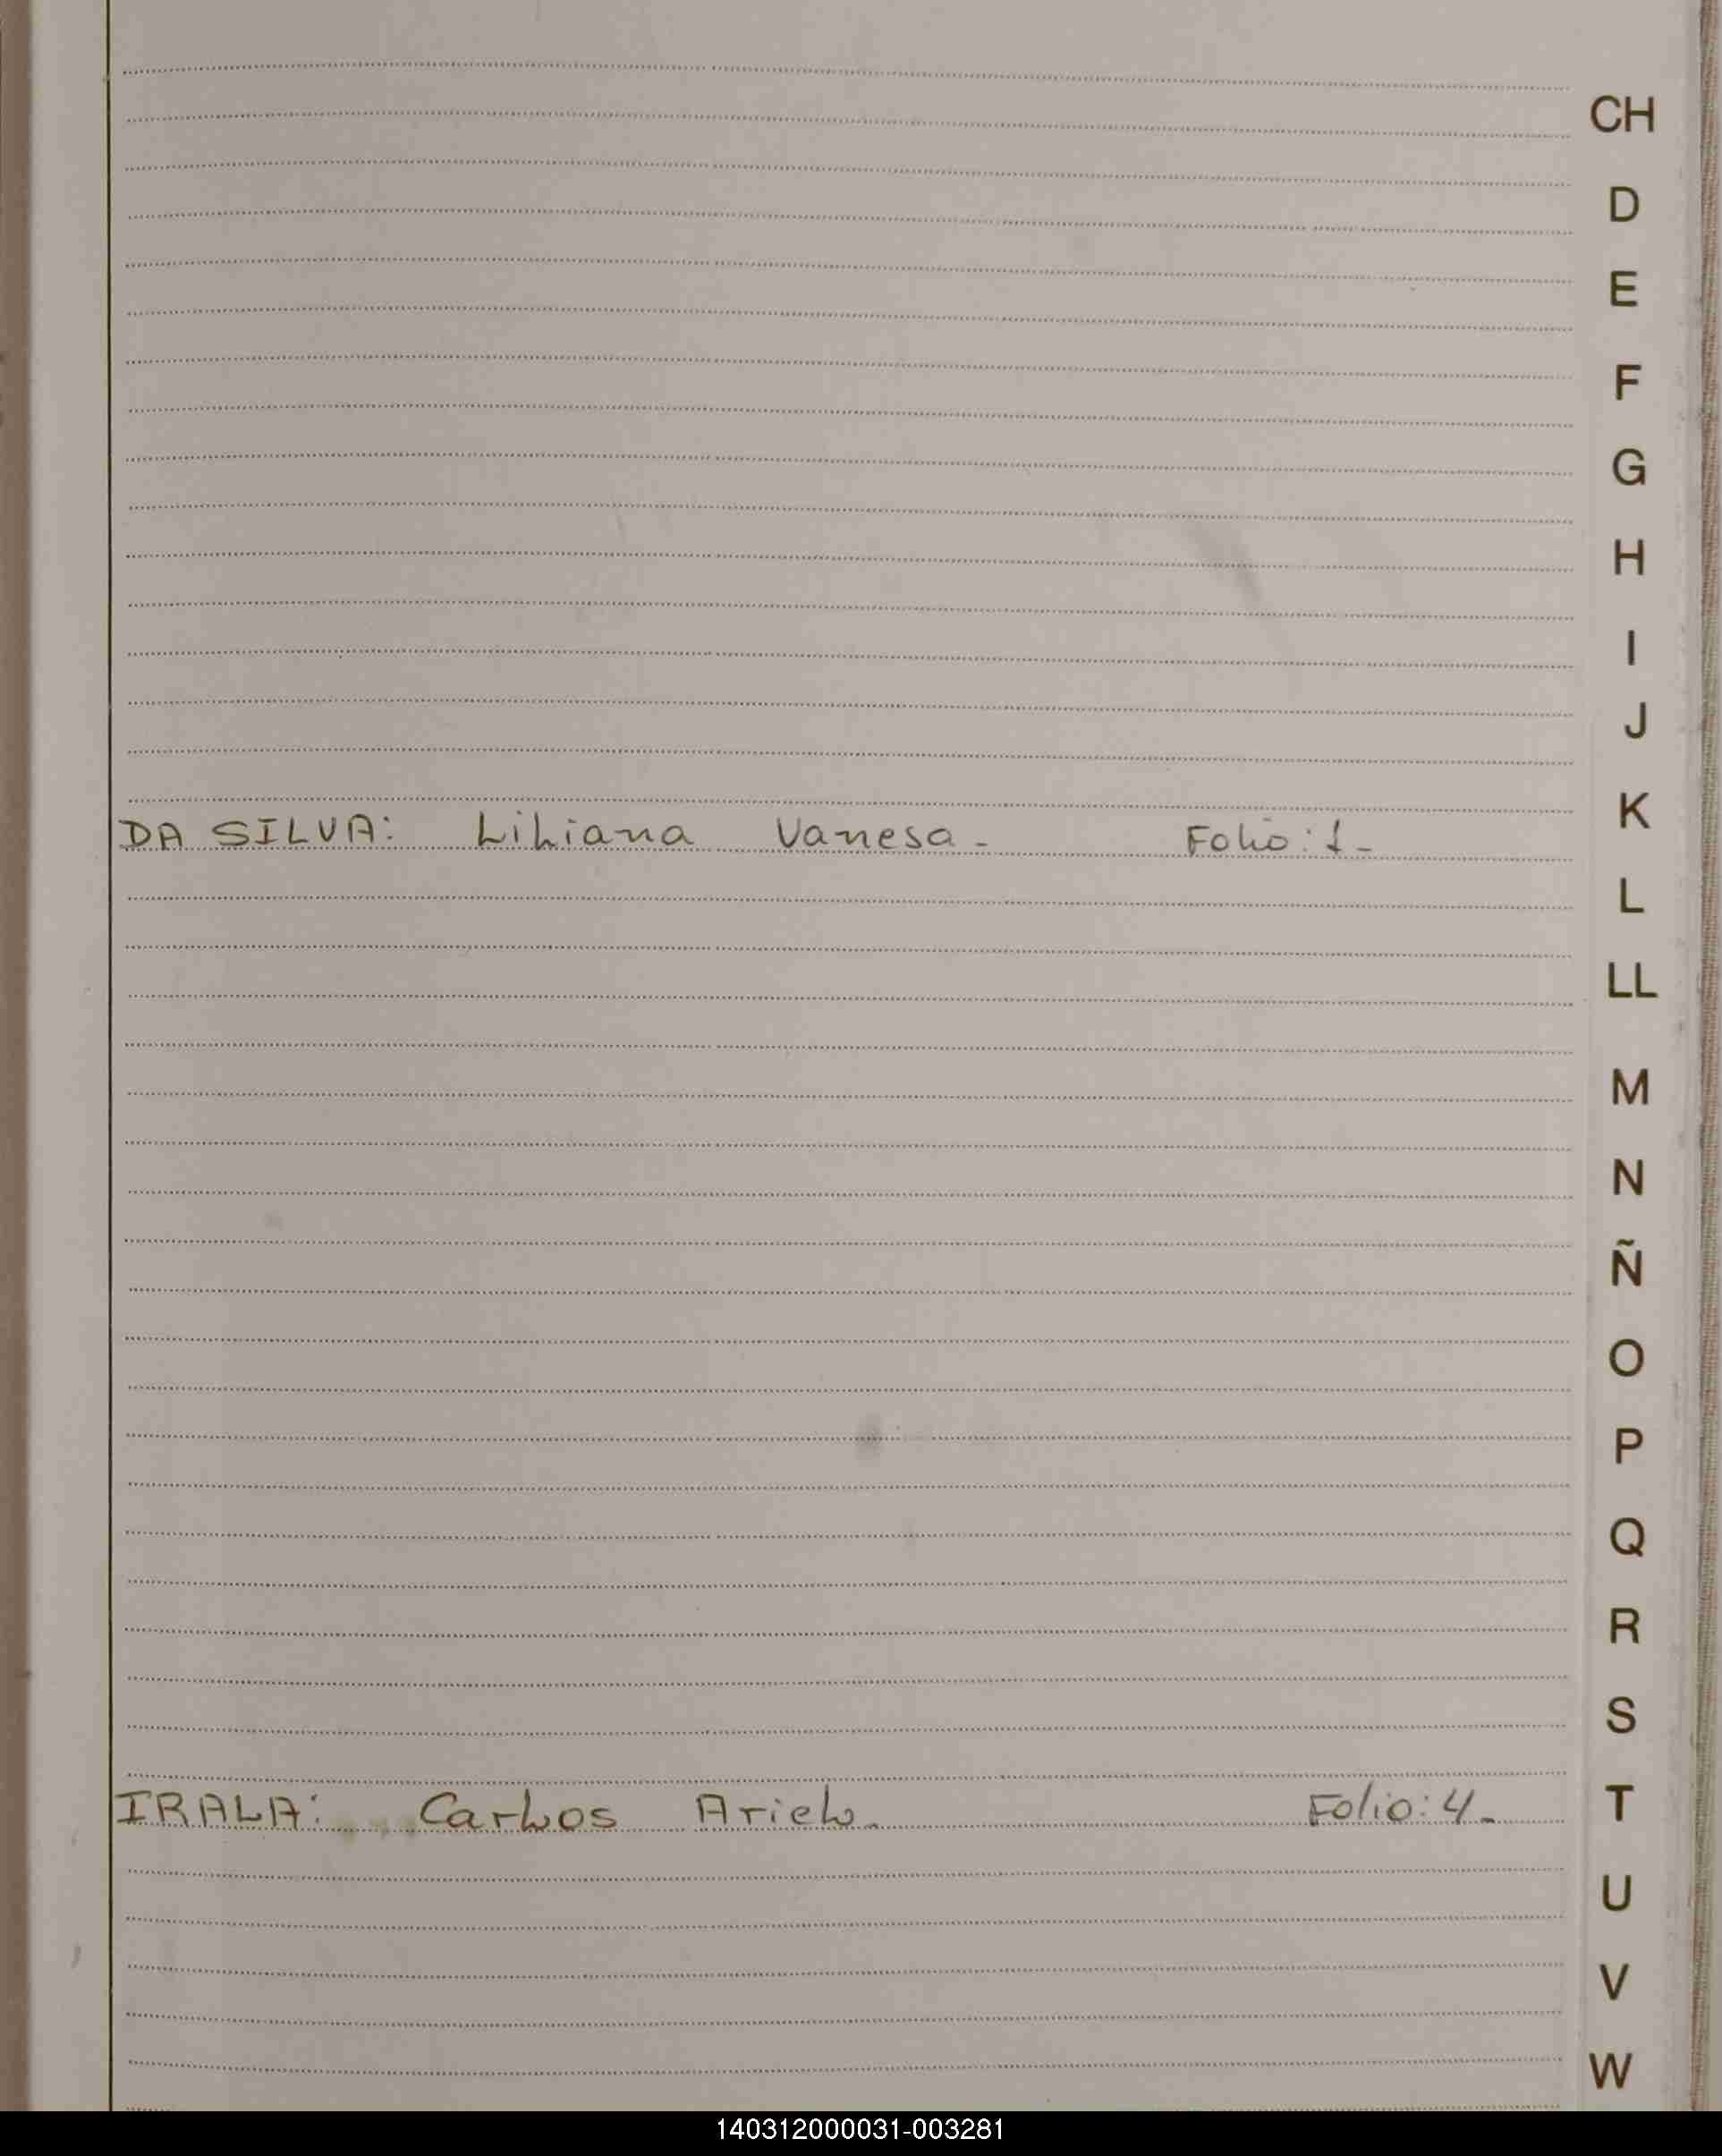 CH
D
E
F
G
H
I
J
K
DA SILVA: Liliana Vanesa - Folio: 1 -
L
LL
M
N
Ñ
O
P
Q
R
S
T
IRALA: Carlos Ariel. Folio: 4 -
U
V
W
140312000031-003281